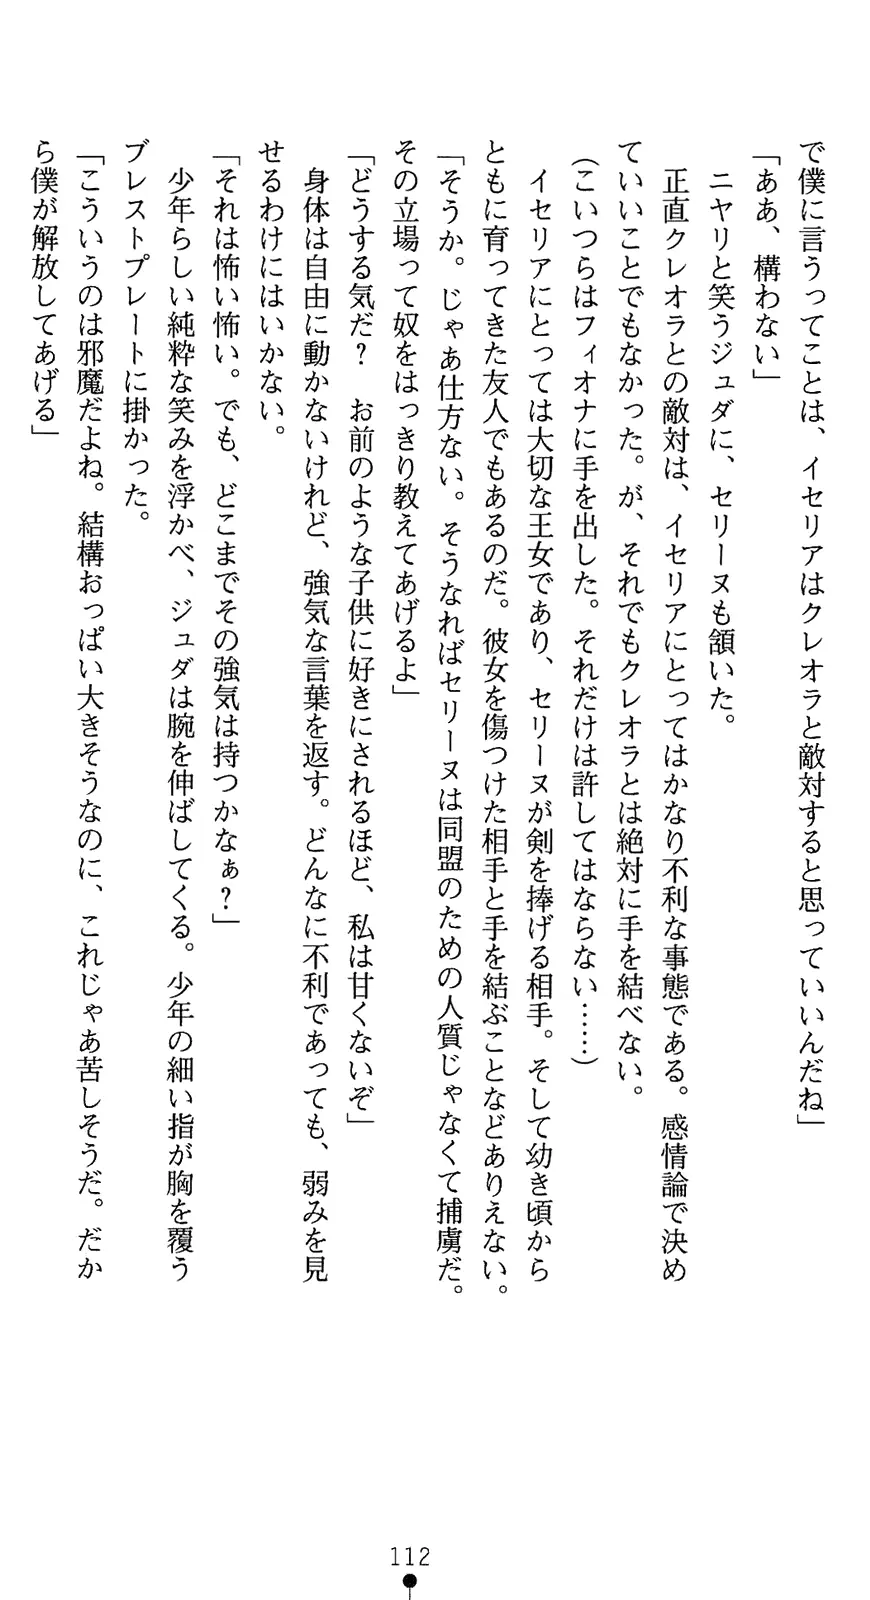 で僕に言うってことは、イセリアはクレオラと敵対すると思っていいんだね」
「ああ、構わない」
　ニヤリと笑うジュダに、セリーヌも頷いた。
　正直クレオラとの敵対は、イセリアにとってはかなり不利な事態である。感情論で決め
ていいことでもなかった。が、それでもクレオラとは絶対に手を結べない。
（こいつらはフィオナに手を出した。それだけは許してはならない……）
　イセリアにとっては大切な王女であり、セリーヌが剣を捧げる相手。そして幼き頃から
ともに育ってきた友人でもあるのだ。彼女を傷つけた相手と手を結ぶことなどありえない。
「そうか。じゃあ仕方ない。そうなればセリーヌは同盟のための人質じゃなくて捕虜だ。
その立場って奴をはっきり教えてあげるよ」
「どうする気だ？　お前のような子供に好きにされるほど、私は甘くないぞ」
　身体は自由に動かないけれど、強気な言葉を返す。どんなに不利であっても、弱みを見
せるわけにはいかない。
「それは怖い怖い。でも、どこまでその強気は持つかなぁ？」
　少年らしい純粋な笑みを浮かべ、ジュダは腕を伸ばしてくる。少年の細い指が胸を覆う
ブレストプレートに掛かった。
「こういうのは邪魔だよね。結構おっぱい大きそうなのに、これじゃあ苦しそうだ。だか
ら僕が解放してあげる」
112